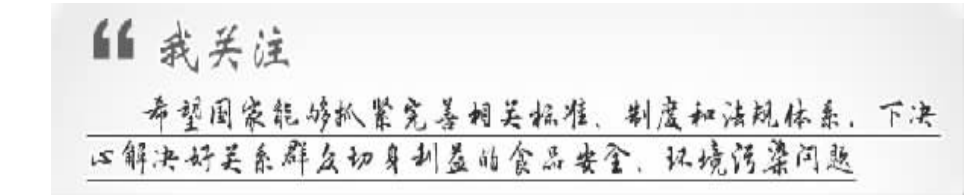 “ 我关注
希望国家能够抓紧完善相关标准、制度和法规体系，下决
心解决好关系群众切身利益的食品安全、环境污染问题